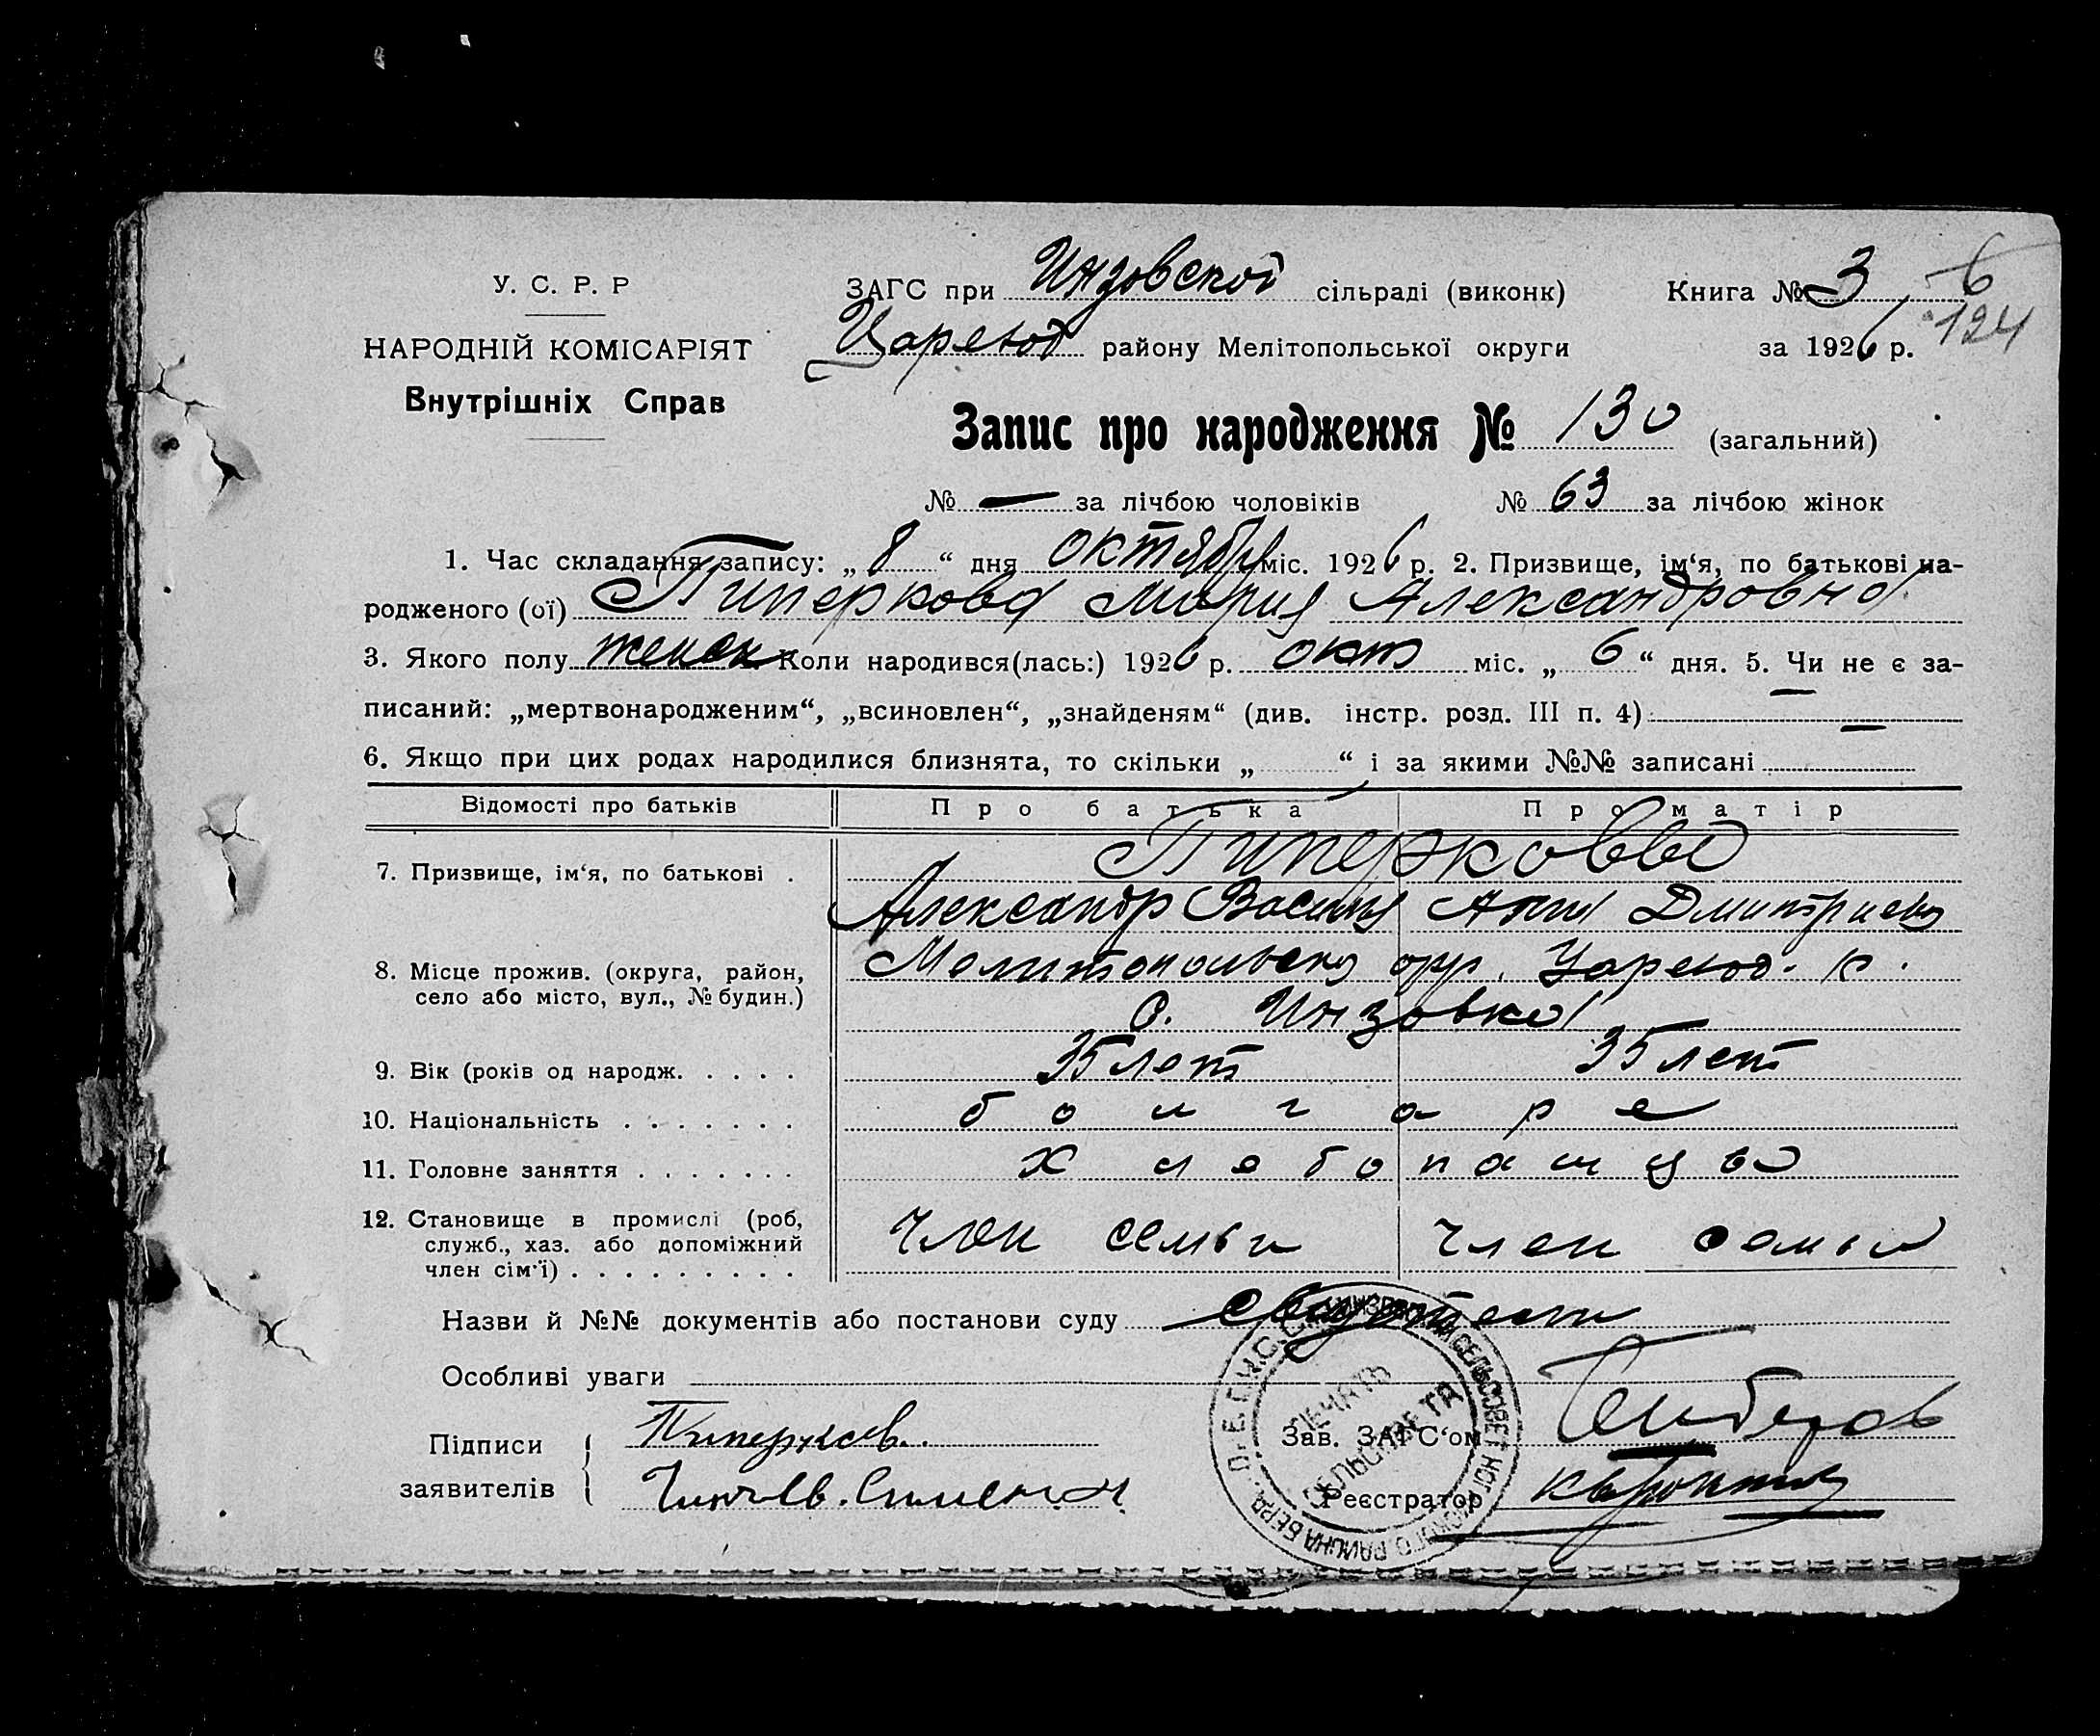 У. С. Р. Р
НАРОДНІЙ КОМІСАРІЯТ
Внутрішніх Справ
ЗАГС при Инзовской сільраді (виконк) Книга № 3 6
Царевод району Мелітопольської округи за 1926 р. 124
Запис про народження № 130 (загальний)
№ — за лічбою чоловіків № 63 за лічбою жінок
1. Час складання запису: „ 8 “ дня октября міс. 1926 р. 2. Призвище, ім‘я, по батькові на-
родженого (ої) Пиперкова Мария Александровна
3. Якого полу женск Коли народився(лась:) 1926 р. окт міс. „ 6 “ дня. 5. Чи не є за-
писаний: „мертвонародженим“, „всиновлен“, „знайденям“ (див. інстр. розд. III п. 4) —
6. Якщо при цих родах народилися близнята, то скільки „ “ і за якими №№ записані
Відомості про батьків Про батька Про матір
7. Призвище, ім‘я, по батькові . Пиперковы
Александр Васил Анна Дмитриевн
8. Місце прожив. (округа, район, Мелитопольско окр. Царевод. р.
село або місто, вул., № будин.) с. Инзовка
9. Вік (років од народж. . . . . 35 лет 35 лет
10. Національність . . . . . . . болгаре
11. Головне заняття . . . . . . . хлебопашцы
12. Становище в промислі (роб, член семьи член семьи
служб., хаз. або допоміжний
член сім‘ї) . . . . . . . . .
Назви й №№ документів або постанови суду
Особливі уваги
Підписи Пиперков. Зав. ЗАГС‘ом
заявителів Реєстратор
ПЕЧАТЬ
СЕЛЬСОВЕТА